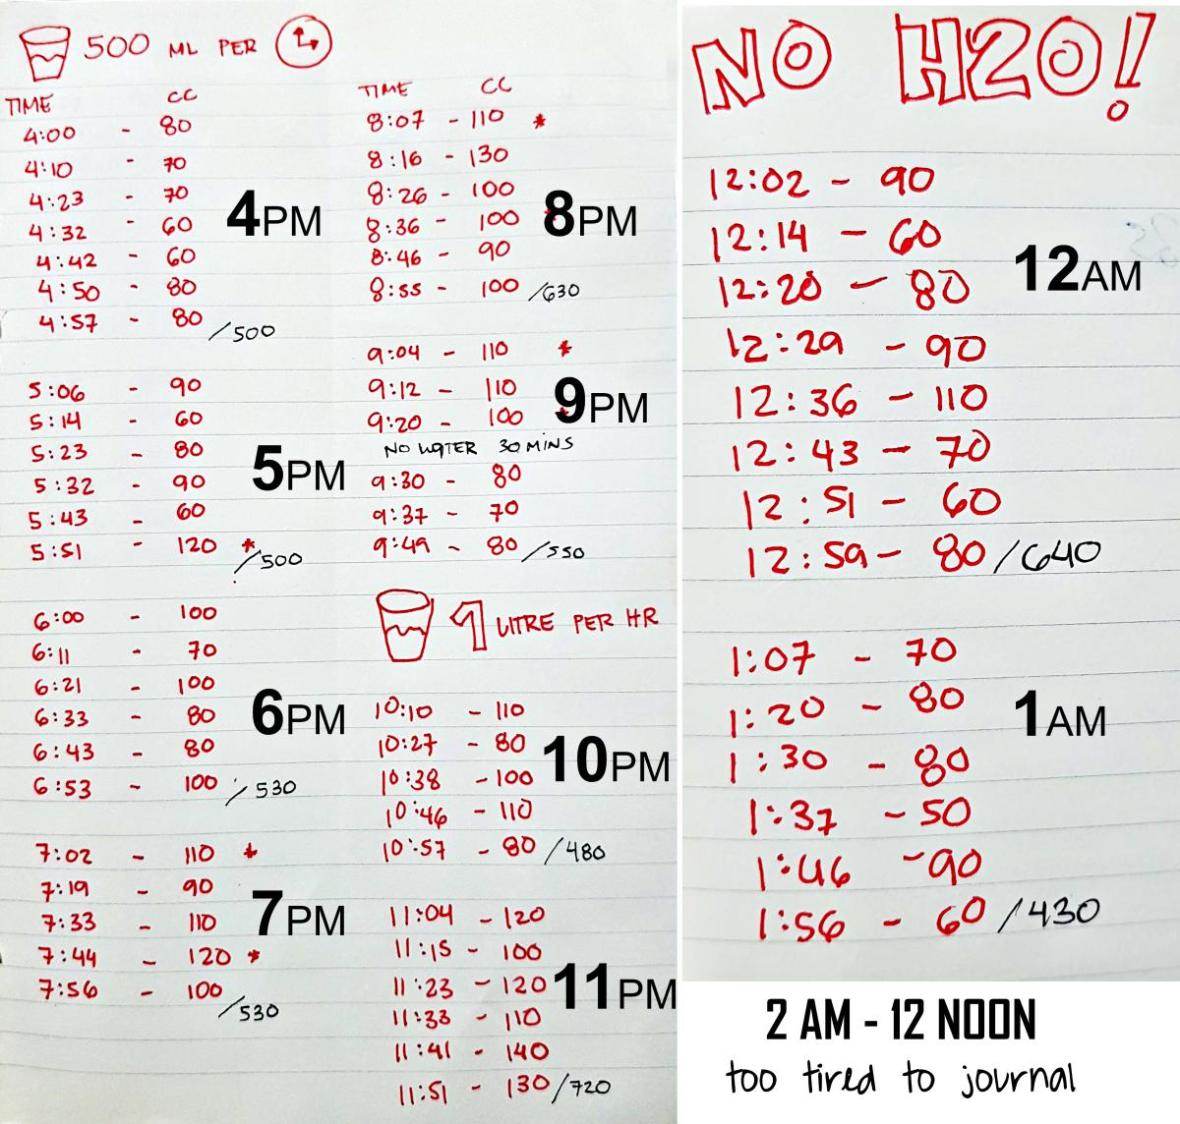 500 ML PER
TIME CC
4:00 - 80
4:10 - 70
4:23 - 70
4:32 - 60
4:42 - 60
4:50 - 80
4:57 - 80
/500
4PM
5:06 - 90
5:14 - 60
5:23 - 80
5:32 - 90
5:43 - 60
5:51 - 120 *
/500
5PM
6:00 - 100
6:11 - 70
6:21 - 100
6:33 - 80
6:43 - 80
6:53 - 100 /530
6PM
7:02 - 110 *
7:19 - 90
7:33 - 110
7:44 - 120 *
7:56 - 100
/530
7PM
TIME CC
8:07 - 110 *
8:16 - 130
8:26 - 100
8:36 - 100
8:46 - 90
8:55 - 100 /630
8PM
9:04 - 110 *
9:12 - 110
9:20 - 100
NO WATER 30 MINS
9:30 - 80
9:37 - 70
9:49 - 80 /550
9PM
1 LITRE PER HR
10:10 - 110
10:27 - 80
10:38 - 100
10:46 - 110
10:57 - 80 /480
10PM
11:04 - 120
11:15 - 100
11:23 - 120
11:33 - 110
11:41 - 140
11:51 - 130 /720
11PM
NO H2O!
12:02 - 90
12:14 - 60
12:20 - 80
12:29 - 90
12:36 - 110
12:43 - 70
12:51 - 60
12:59 - 80 /640
12AM
1:07 - 70
1:20 - 80
1:30 - 80
1:37 - 50
1:46 - 90
1:56 - 60 /430
1AM
2 AM - 12 NOON
too tired to journal